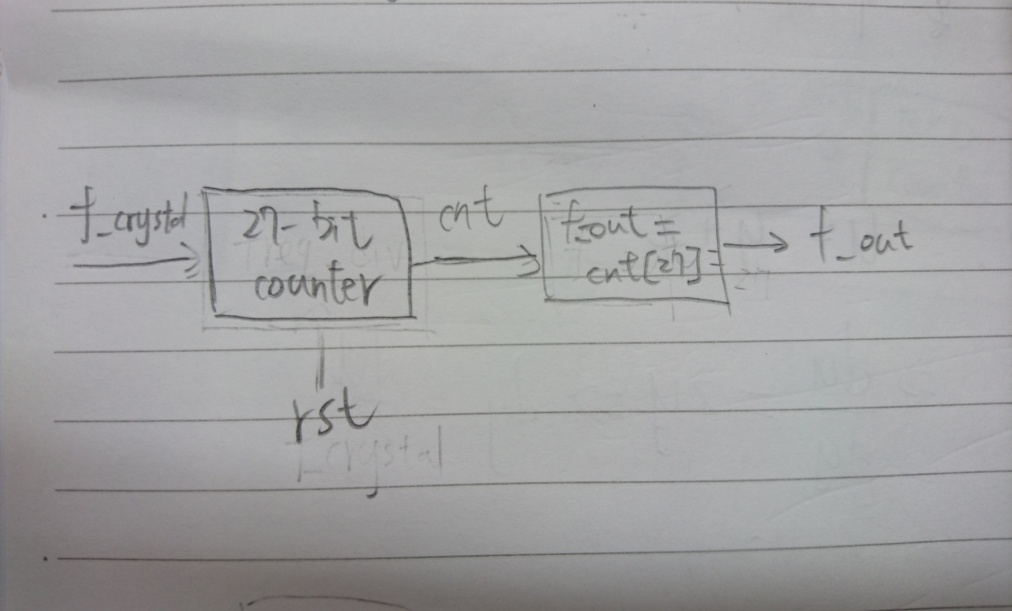 f_crystal
27-bit
counter
cnt
f_out =
cnt[27]
f_out
rst
f_crystal